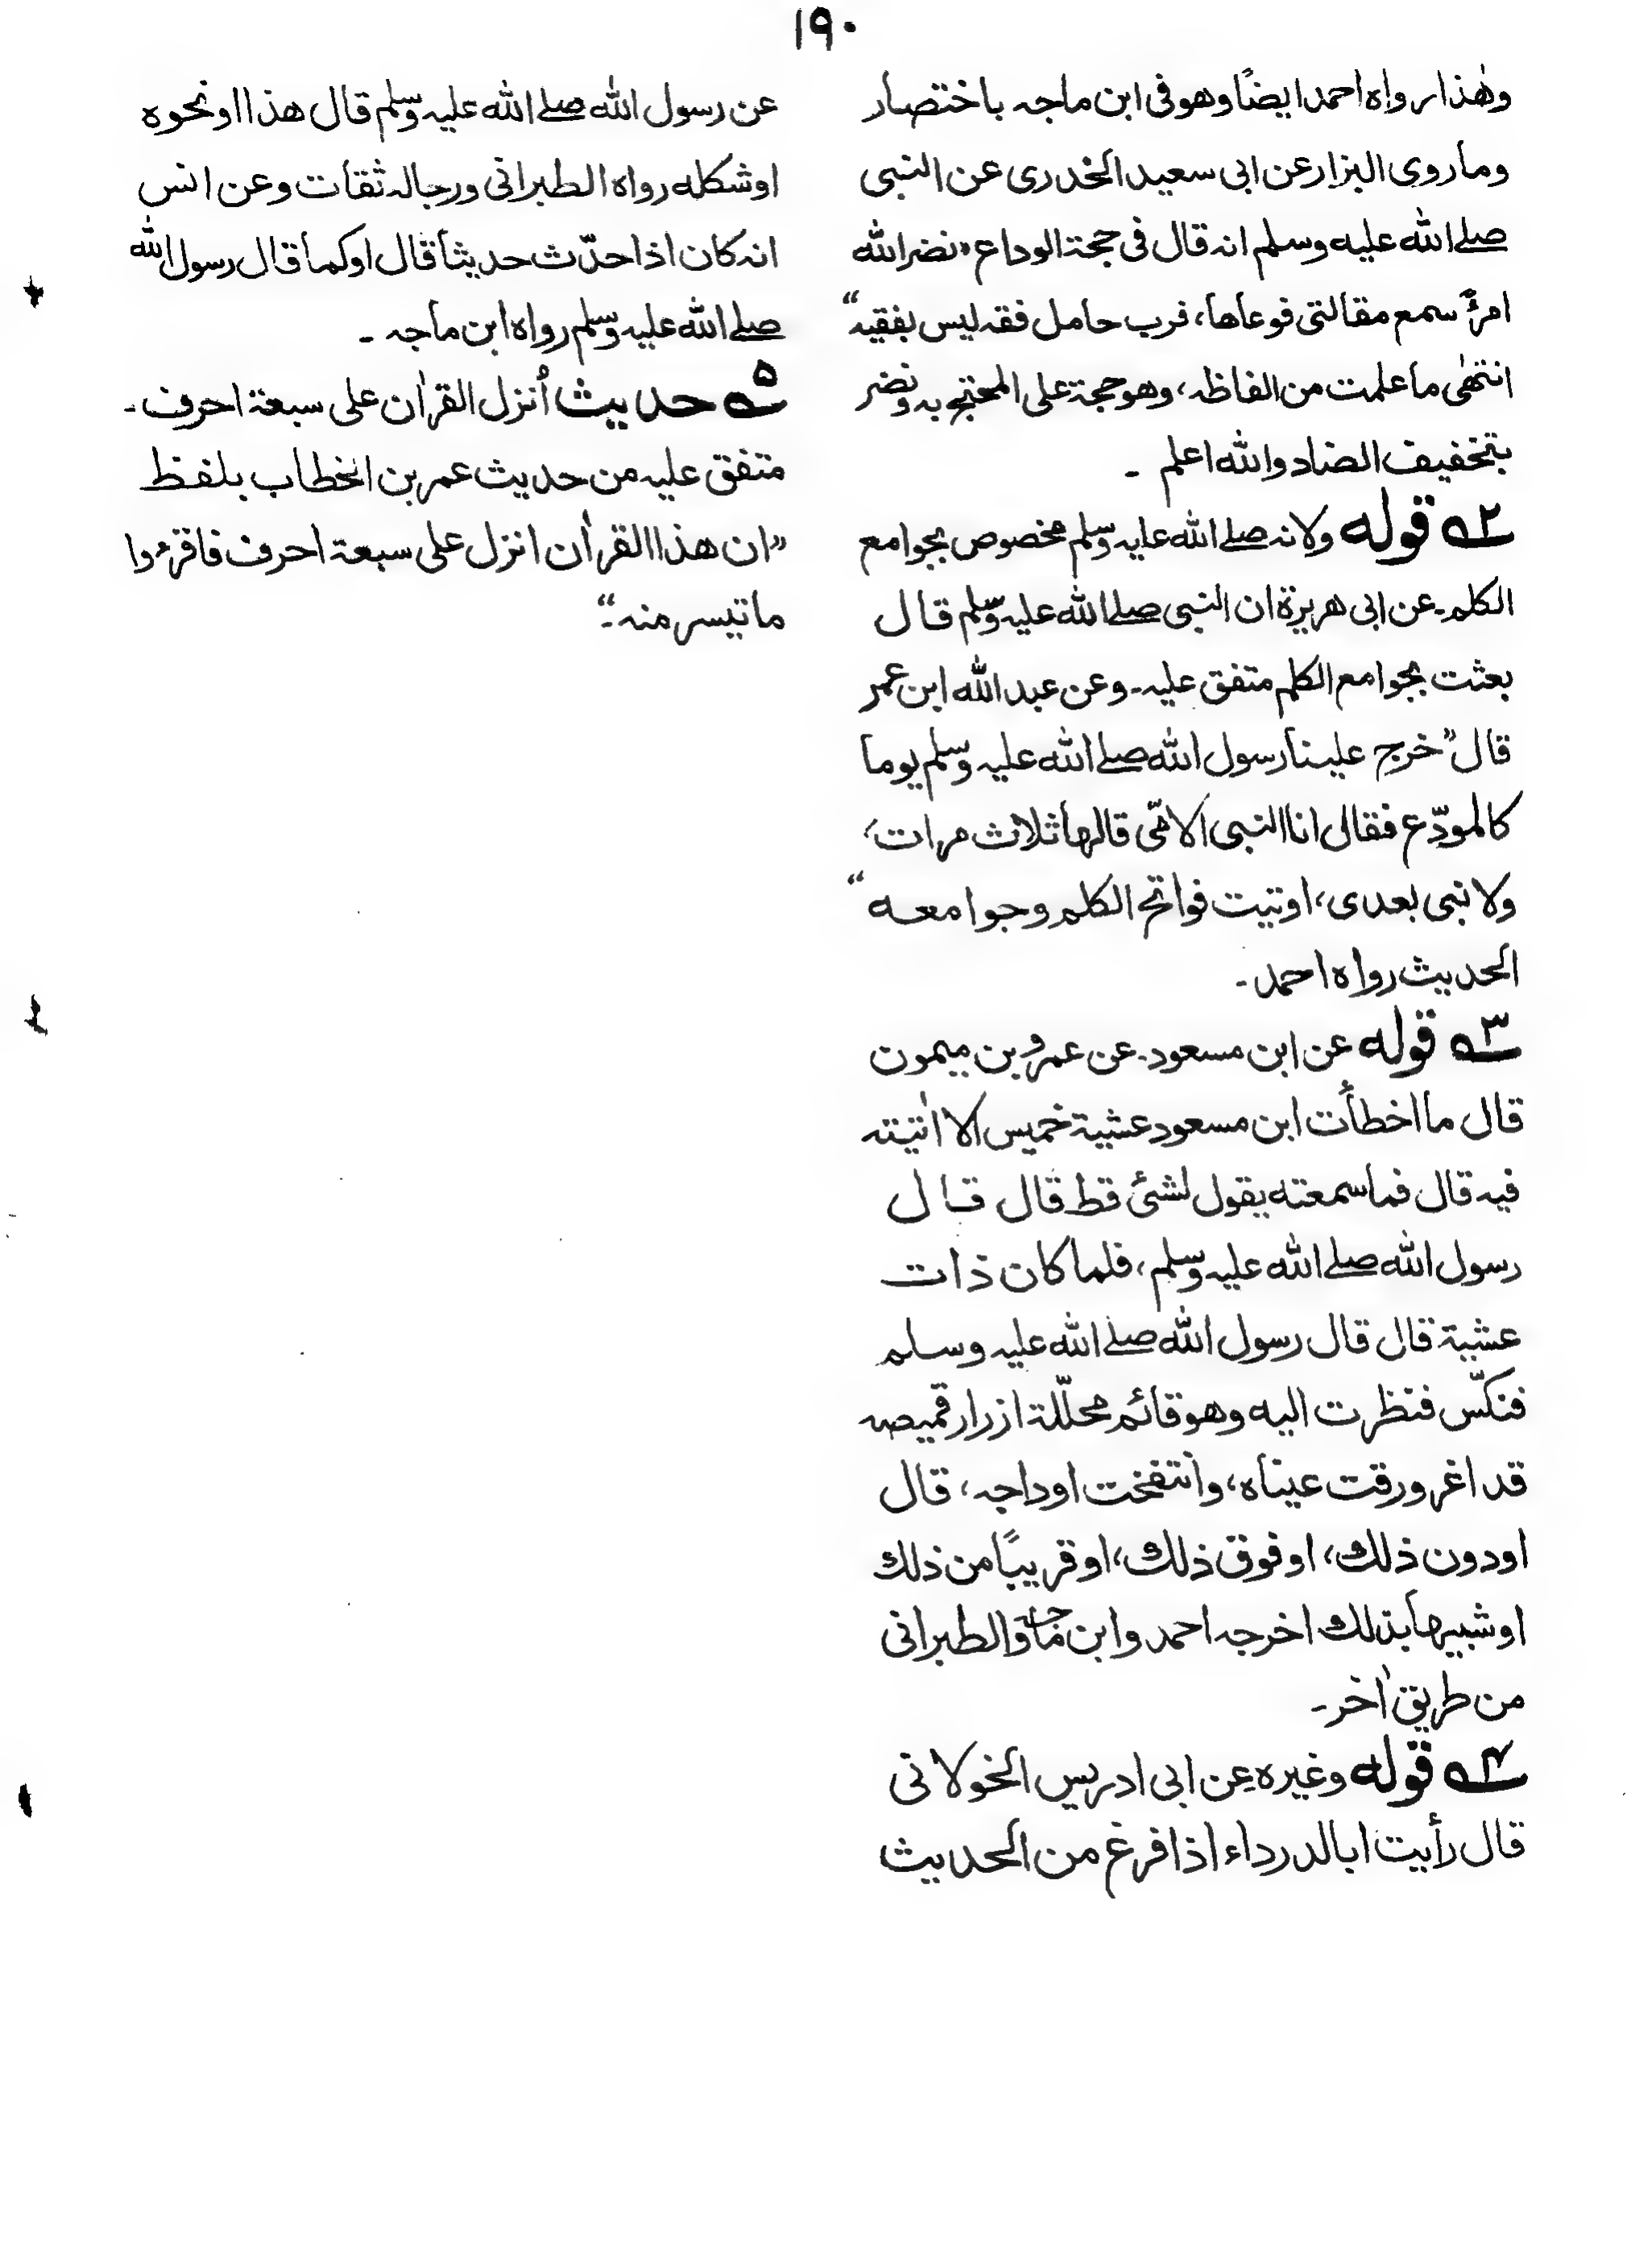 ١٩٠
وهٰذا رواه احمد ايضًا وهو فى ابن ماجه باختصار
وما روى البزار عن ابى سعيد الخدرى عن النبى
صلے الله عليه وسلم انه قال فى حجة الوداع "نضر الله
امرءً سمع مقالتى فوعاها، فرب حامل فقه ليس بفقيه"
انتهٰى ما علمت من الفاظه، وهو حجة على المحتج به ونضر
بتخفيف الضاد والله اعلم ـ
٢ــه قوله ولانه صلے الله عليه وسلم مخصوص بجوامع
الكلم۔ عن ابى هريرة ان النبى صلے الله عليه وسلم قال
بعثت بجوامع الكلم متفق عليه۔ وعن عبد الله ابن عمر
قال "خرج علينا رسول الله صلے الله عليه وسلم يوما
كالمودّع فقال انا النبى الامّى قالها ثلاث مرات،
ولا نبى بعدى، اوتيت فواتح الكلم وجوامعه"
الحديث رواه احمد۔
٣ــه قوله عن ابن مسعود۔ عن عمرو بن ميمون
قال ما اخطأت ابن مسعود عشية خميس الا اٰتيته
فيه قال فما سمعته يقول لشئ قط قال قال
رسول الله صلے الله عليه وسلم، فلما كان ذات
عشية قال قال رسول الله صلے الله عليه وسلم
فنكّس فنظرت اليه وهو قائم محلّلة ازرار قميصه
قد اغرورقت عيناه، وانتفخت اوداجه، قال
او دون ذلك، او فوق ذلك، او قريبًا من ذلك
او شبيها بذلك اخرجه احمد وابن ماجه والطبرانى
من طريق اٰخر۔
٤ــه قوله وغيره عن ابى ادريس الخولانى
قال رأيت ابا الدرداء اذا فرغ من الحديث
عن رسول الله صلے الله عليه وسلم قال هذا او نحوه
او شكله رواه الطبرانى ورجاله ثقات وعن انس
انه كان اذا حدّث حديثا قال او كما قال رسول الله
صلے الله عليه وسلم رواه ابن ماجه ۔
٥ــه حديث اُنزل القراٰن على سبعة احرف۔
متفق عليه من حديث عمر بن الخطاب بلفظ
"ان هذا القراٰن انزل على سبعة احرف فاقرءوا
ما تيسر منه۔"